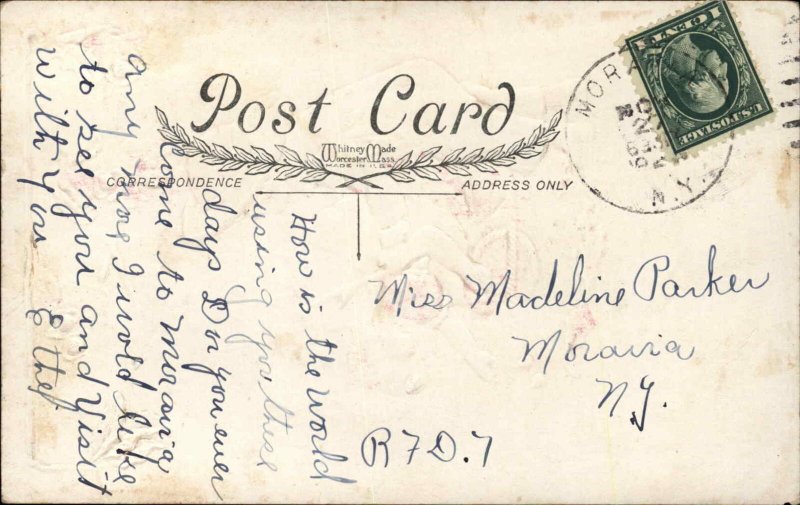 Post Card
Whitney Made
Worcester Mass.
MADE IN U.S.A.
CORRESPONDENCE
ADDRESS ONLY
U.S. POSTAGE
1 CENT 1
MORA
N.Y.
How is the world
using you these
days Do you ever
come to Moravia
any more I wold like
to see you and Visit
with you
Ethel
Miss Madeline Parker
Moravia
N.Y.
R7D.7